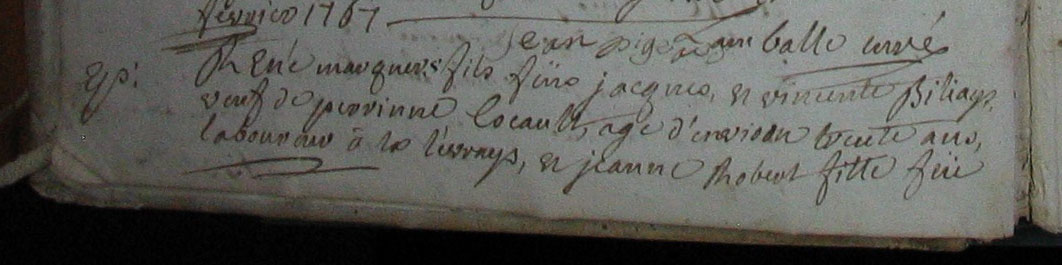 février 1767
jean pige Lamballe curé
Ep: René marquer fils feüe jacques, et vincente Biliays,
veuf de perrinne Locault, agé d'environ trente ans,
laboureur à la , et jeanne Robert fille feüe